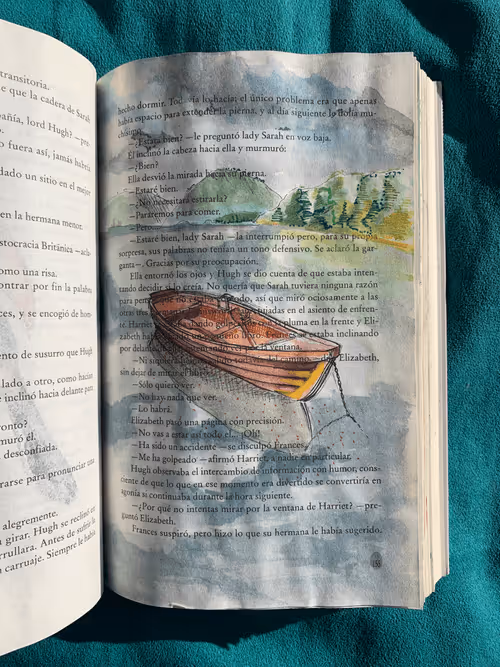 transitoria.
e que la cadera de Sarah
lord Hugh? —pre-
o.
o fuera así, jamás habría
dado un sitio en el mejor
en la hermana menor.
istocracia Británica —acla-
omo una risa.
contrar por fin la palabra
ces, y se encogió de hom-
ento de susurro que Hugh
lado a otro, como hacían
e inclinó hacia delante para
ronto?
murmuró él.
desconfiada.
rarse para pronunciar una
alegremente.
a girar. Hugh se reclinó un
rrullara. Antes de
carruaje. Siempre le había
hecho dormir. lo hacía; el único problema era que apenas
había espacio para extender la pierna, y al día siguiente le dolía mu-
chísimo.
—¿Estará bien? —le preguntó lady Sarah en voz baja.
Él inclinó la cabeza hacia ella y murmuró:
—¿Bien?
Ella desvió la mirada hacia su pierna.
—Estaré bien.
—¿No necesitará estirarla?
—Pararemos para comer.
—Pero...
—Estaré bien, lady Sarah —la interrumpió pero, para su propia
sorpresa, sus palabras no tenían un tono defensivo. Se aclaró la gar-
ganta—. Gracias por su preocupación.
Ella entornó los ojos y Hugh se dio cuenta de que estaba inten-
tando decidir si lo creía. No quería que Sarah tuviera ninguna razón
para no así que miró ociosamente a las
otras en el asiento de enfren-
te. Harriet golpe pluma en la frente y Eli-
zabeth un pequeño libro. Frances se estaba inclinando
por ventana.
—Ni siquiera camino —dijo Elizabeth,
sin dejar de mirar el libro.
—Sólo quiero ver.
—No hay nada que ver.
—Lo habrá.
Elizabeth pasó una página con precisión.
—No vas a estar así todo el... ¡Oh!
—Ha sido un accidente —se disculpó Frances.
—Me ha golpeado —afirmó Harriet, a nadie en particular.
Hugh observaba el intercambio de información con humor, cons-
ciente de que lo que en ese momento era divertido se convertiría en
agonía si continuaba durante la hora siguiente.
—¿Por qué no intentas mirar por la ventana de Harriet? —pre-
guntó Elizabeth.
Frances suspiró, pero hizo lo que su hermana le había sugerido.